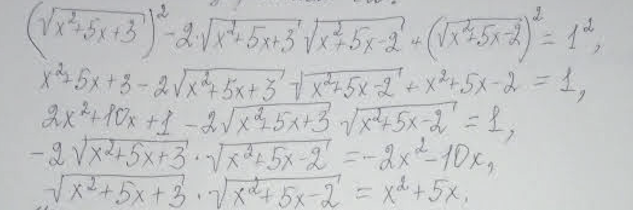 (√(x²+5x+3))² - 2·√(x²+5x+3) √(x²+5x-2) + (√(x²+5x-2))² = 1²,
x²+5x+3 - 2√(x²+5x+3) √(x²+5x-2) + x²+5x-2 = 1,
2x²+10x+1 - 2√(x²+5x+3) √(x²+5x-2) = 1,
-2√(x²+5x+3) · √(x²+5x-2) = -2x²-10x,
√(x²+5x+3) · √(x²+5x-2) = x²+5x.